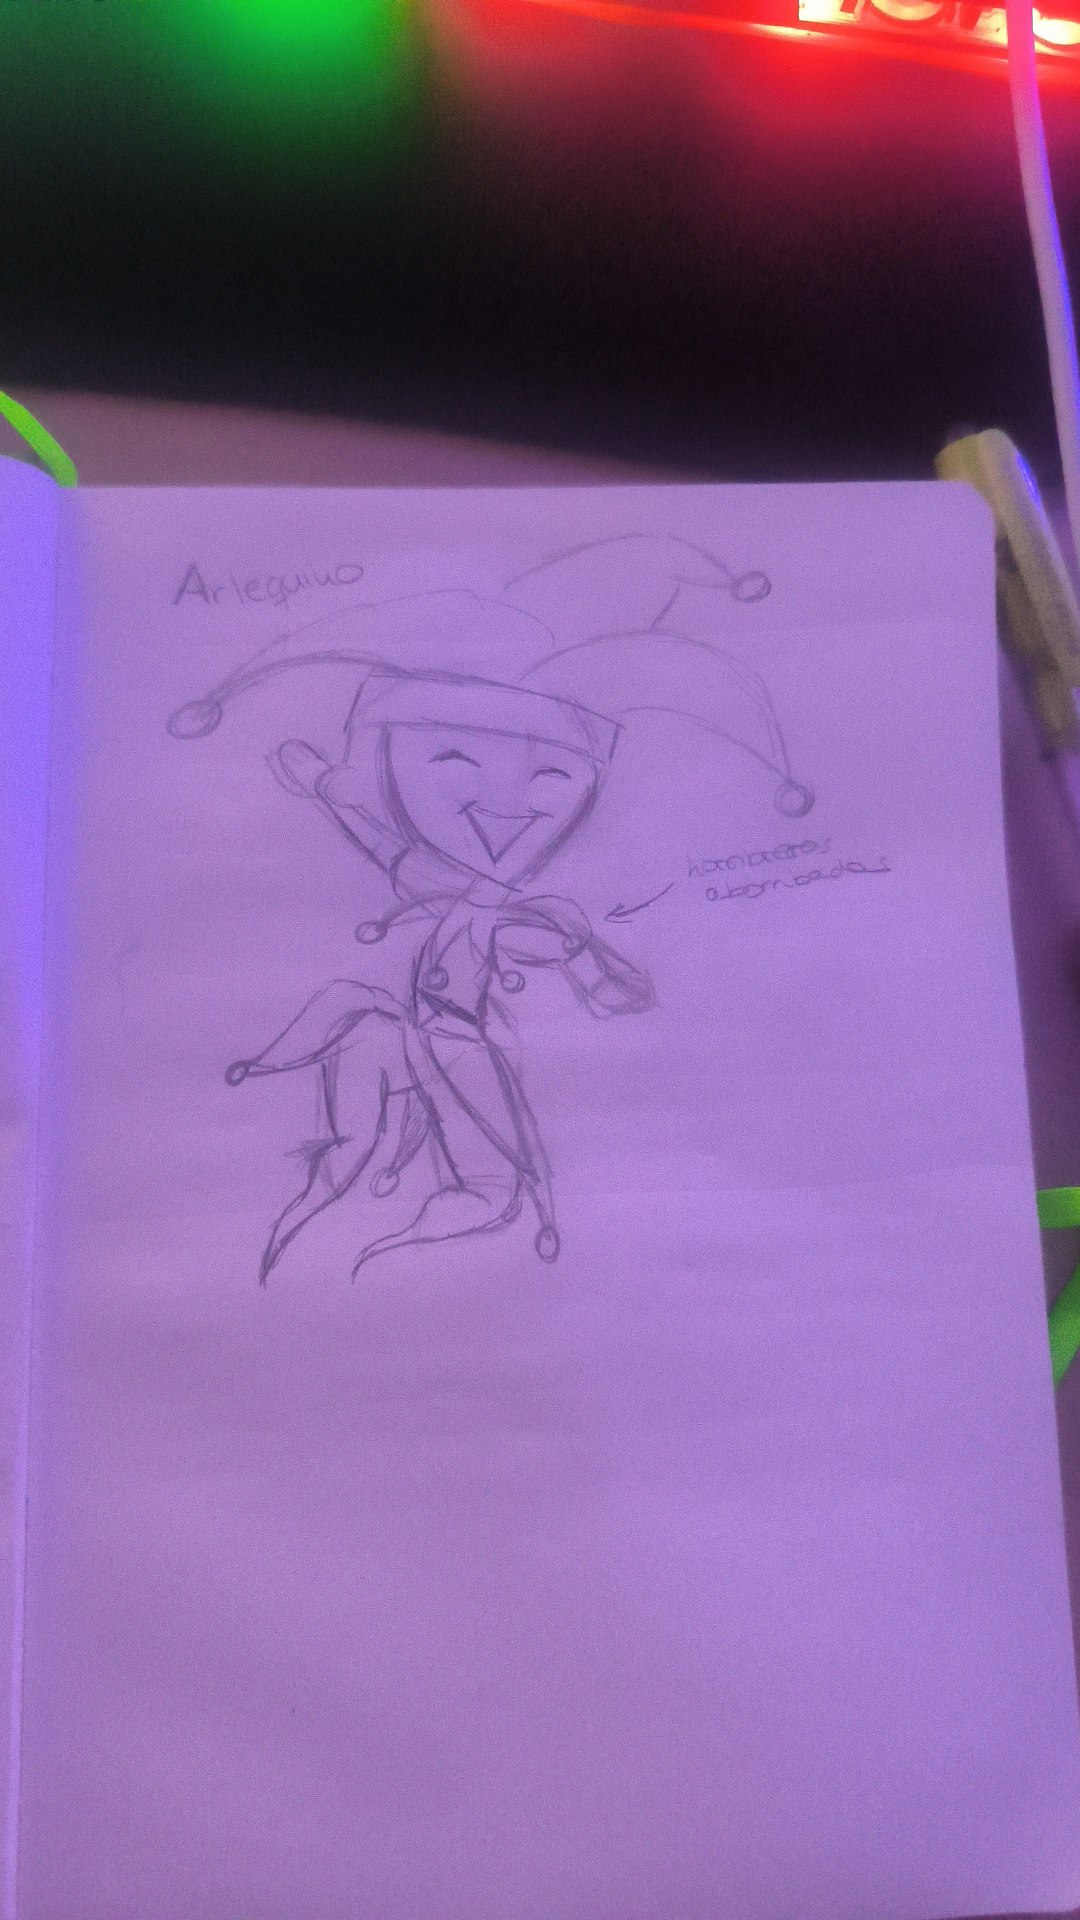 Arlequino
hombreras
abombadas